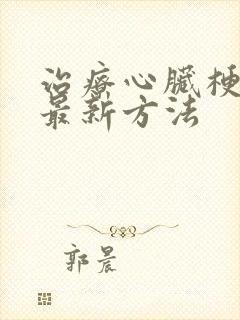 治療心臟梗
最新方法
郭晨